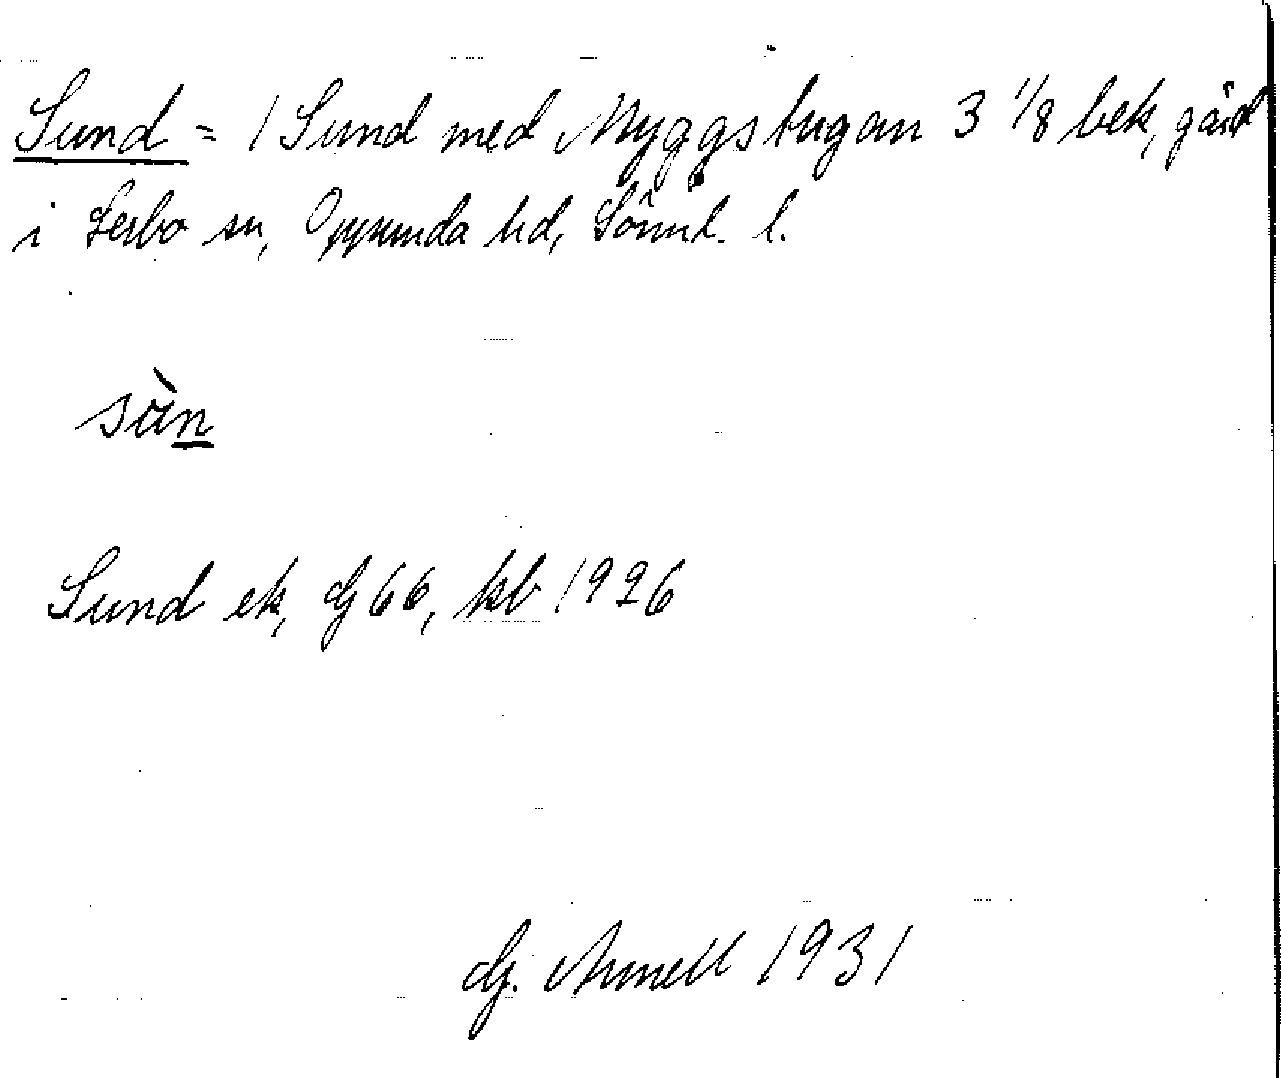 Sund = 1 Sund med Myggstugan 3 1/8 bek, gård
i Lerbo sn, Oppunda hd, Sörml. l.
sùn
Sund ek, Gj 66, kb 1926
Gj. Arnell 1931